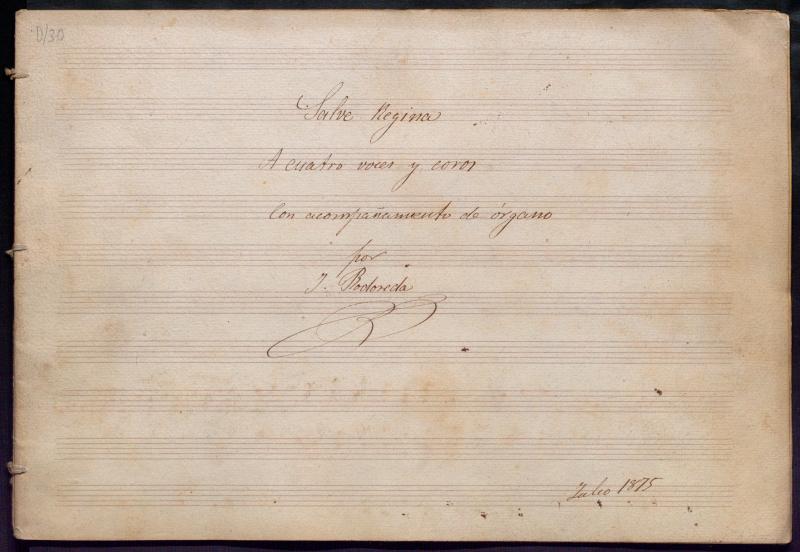 D/30
Salve Regina
A cuatro voces y coros
Con acompañamento de órgano
por
J. Rodoreda
Julio 1875